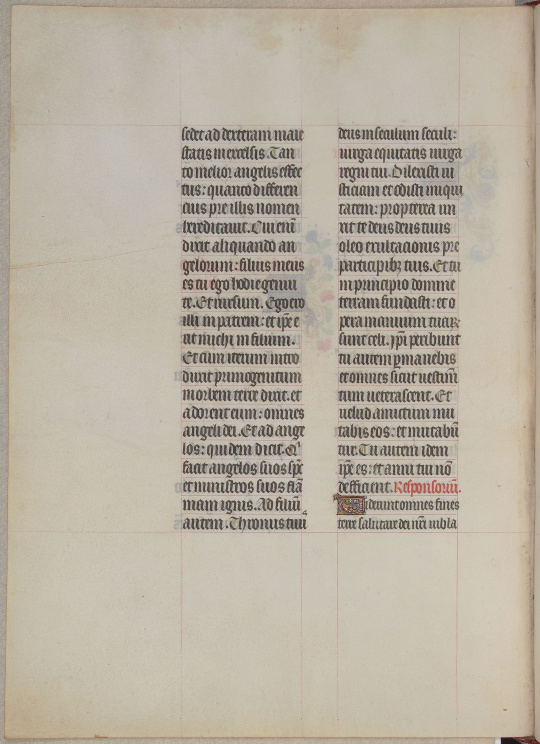 sedet ad dexteram maie
statis in excelsis. Tan
to melior angelis effec
tus: quanto differen
cius pre illis nomen
hereditauit. Cui eni̅
dixit aliquando an
gelorum: filius meus
es tu ego hodie genui
te. Et rursum. Ego ero
illi in patrem: et ip̅e e
rit michi in filium.
Et cum iterum intro
ducit primogenitum
in orbem terre dixit. et
adorent eum: omnes
angeli dei. Et ad ange
los: quidem dicit. Q'
facit angelos suos sp̅c
et ministros suos fla̅
mam ignis. Ad filiu̅
autem. Thronus tuus
deus in seculum seculi:
uirga equitatis uirga
regni tui. Dilexisti iu
sticiam et odisti iniqui
tatem: propterea un
xit te deus deus tuus
oleo exultacionis pre
participibꝫ tuis. Et tu
in principio domine
terram fundasti: et o
pera manuum tuaꝝ
sunt celi. Ip̅i peribunt
tu autem ꝑmanebis
et omnes sicut uestim̅
tum ueterascent. Et
uelud amictum mu
tabis eos: et mutabu̅
tur. Tu autem idem
ip̅e es: et anni tui no̅
defficient. Responsoriu̅.
Uiderunt omnes fines
terre salutare dei nr̅i iubila